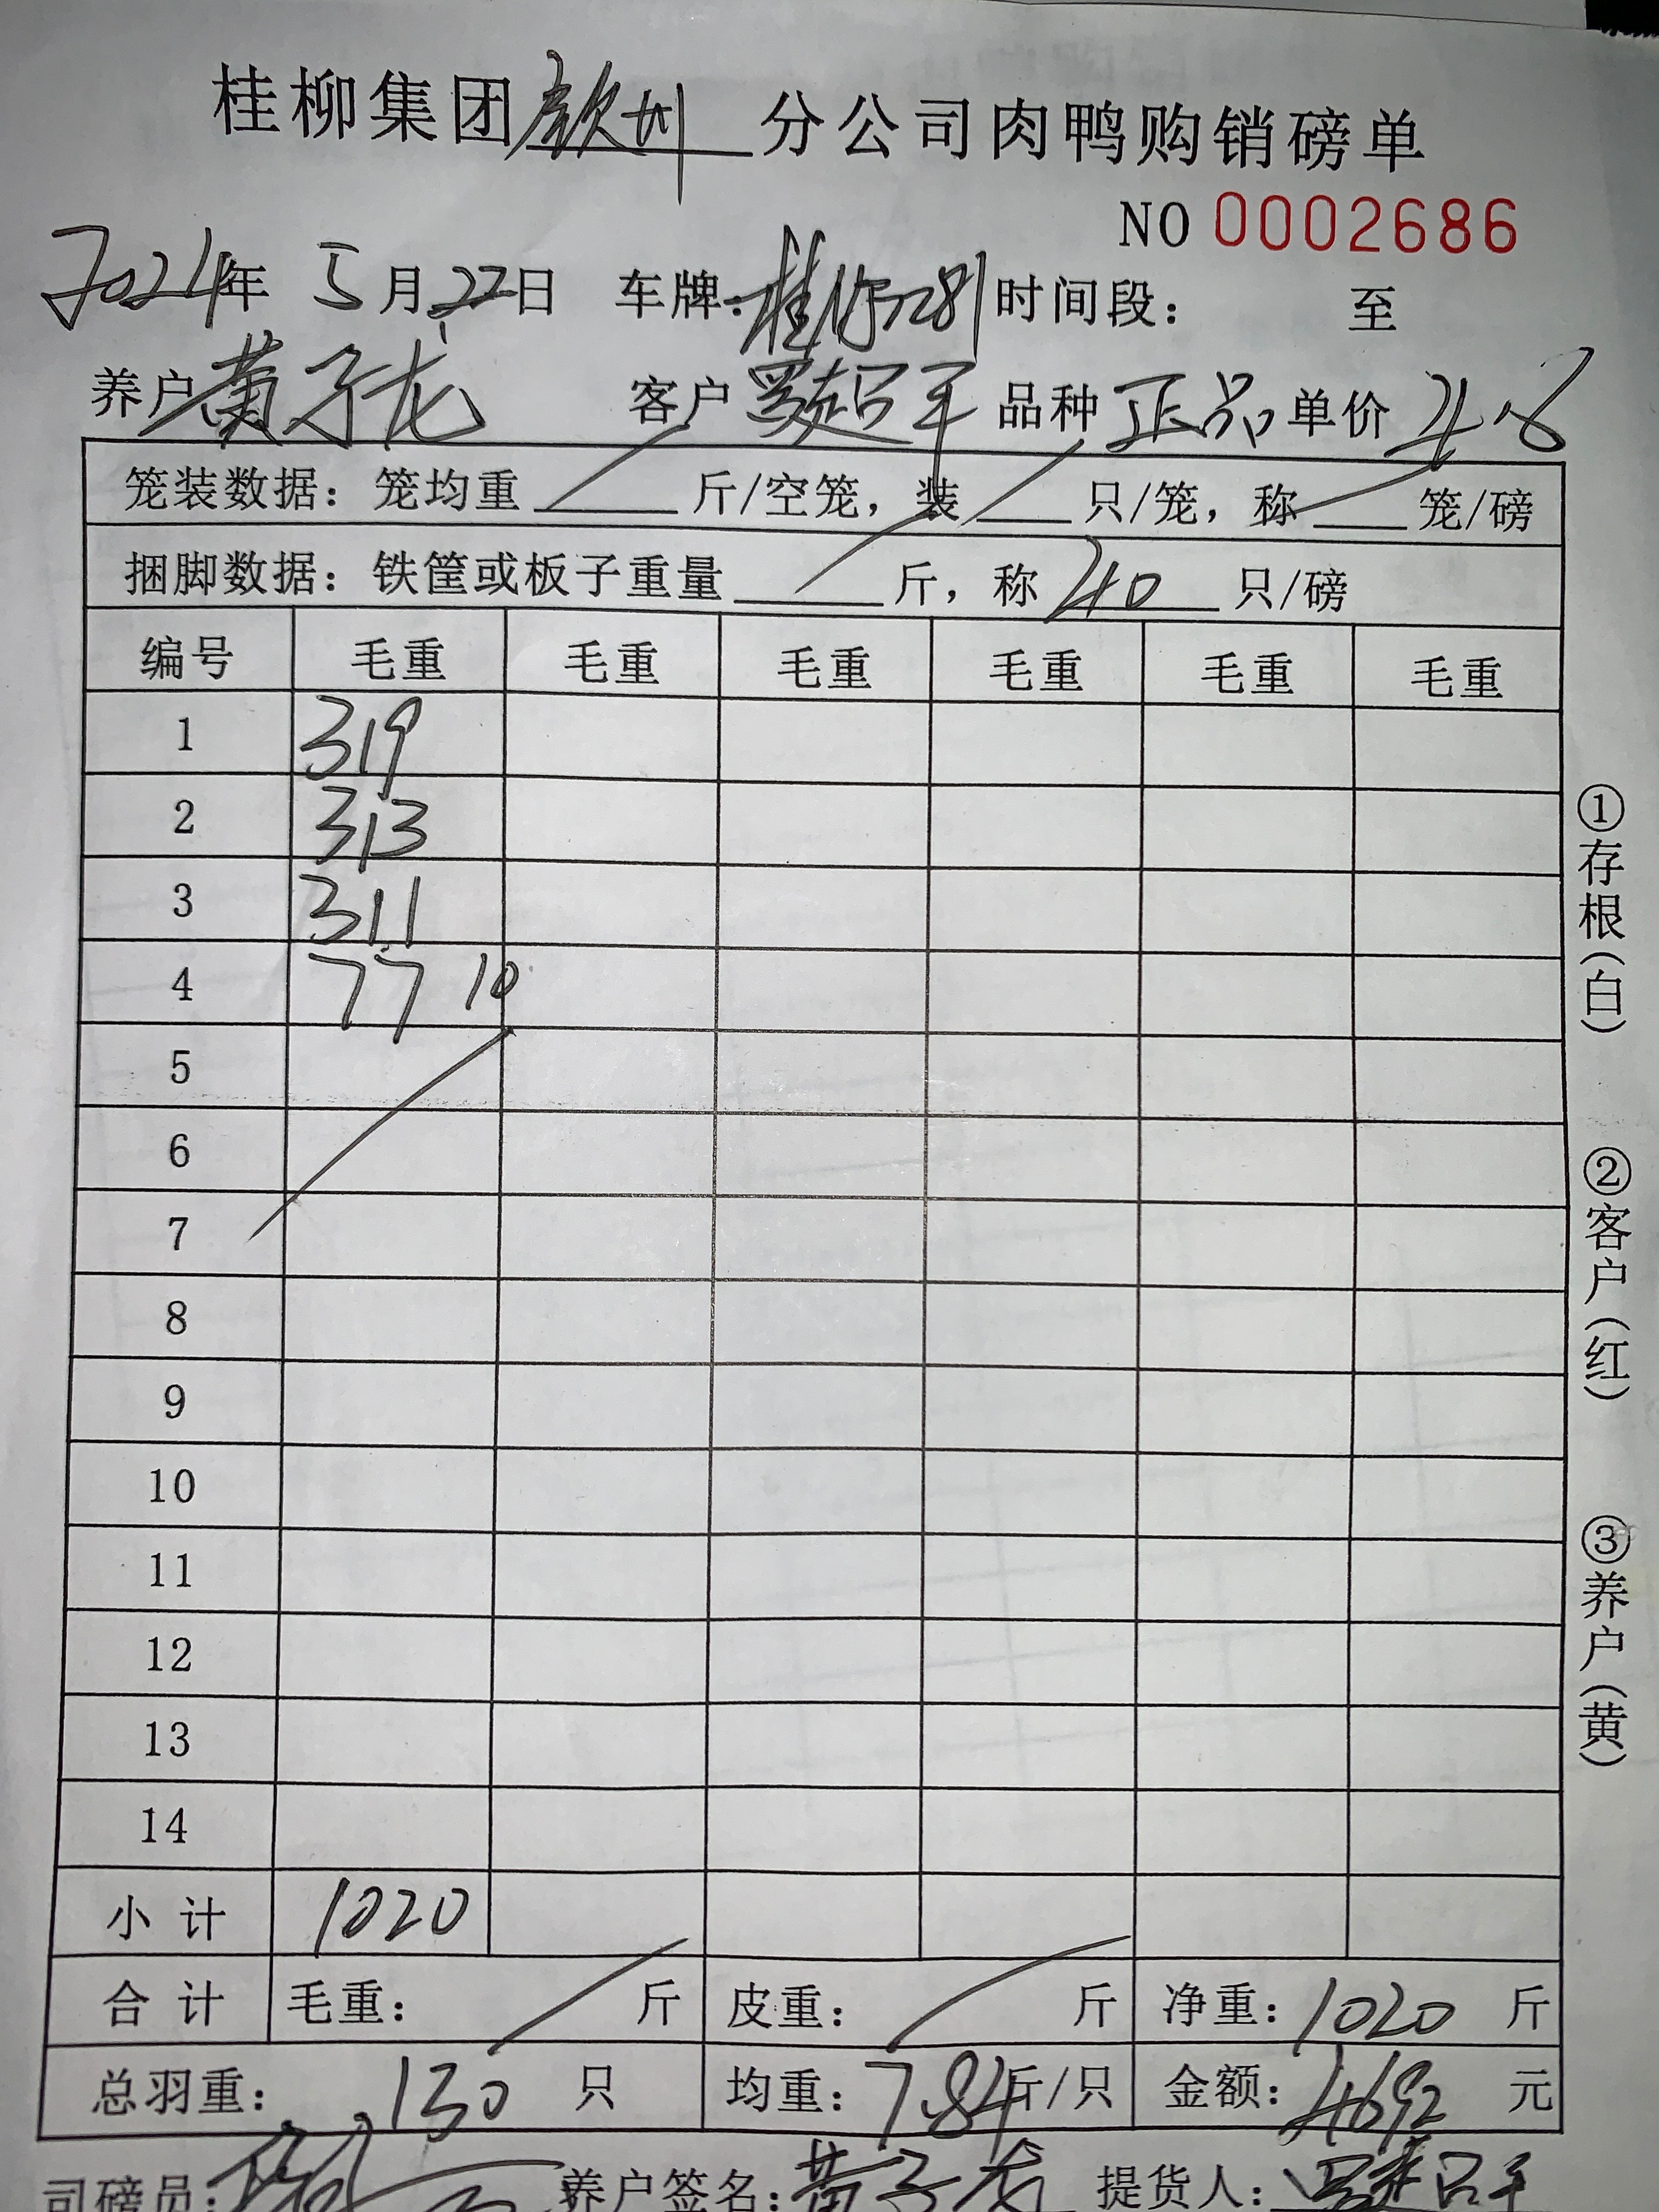 桂柳集团钦州分公司肉鸭购销磅单
NO 0002686
2024年 5月22日 车牌: 时间段: 至
养户 黄子龙 客户 品种 正品 单价 4.6
笼装数据: 笼均重 斤/空笼, 装 只/笼, 称 笼/磅
捆脚数据: 铁筐或板子重量 斤, 称 40 只/磅
编号 毛重 毛重 毛重 毛重 毛重 毛重
1 319
2 313
3 311
4 77 10
5
6
7
8
9
10
11
12
13
14
小计 1020
合计 毛重: 斤 皮重: 斤 净重: 1020 斤
总羽重: 130 只 均重: 7.84斤/只 金额: 4692 元
司磅员: 养户签名: 黄子龙 提货人:
①存根(白)
②客户(红)
③养户(黄)